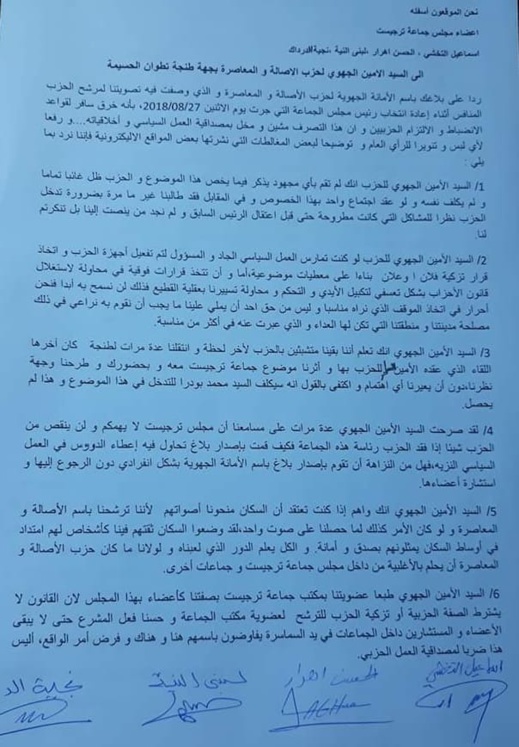 نحن الموقعون أسفله
اعضاء مجلس جماعة ترجيست
اسماعيل التخشي ، الحسن اهرار ،لبنى النية ،نجية الدرداك
الى السيد الامين الجهوي لحزب الاصالة و المعاصرة بجهة طنجة تطوان الحسيمة
ردا على بلاغك باسم الأمانة الجهوية لحزب الأصالة و المعاصرة و الذي وصفت فيه تصويتنا لمرشح الحزب
المنافس أثناء إعادة انتخاب رئيس مجلس الجماعة التي جرت يوم الاثنين 2018/08/27، بأنه خرق سافر لقواعد
الانضباط و الالتزام الحزبيين و ان هذا التصرف مشين و مخل بمصداقية العمل السياسي و أخلاقياته....و رفعا
لأي لبس و تنويرا للرأي العام و توضيحا لبعض المغالطات التي نشرتها بعض المواقع الاليكترونية فإننا نرد بما
يلي :
1/ السيد الأمين الجهوي للحزب انك لم تقم بأي مجهود يذكر فيما يخص هذا الموضوع و الحزب ظل غائبا تماما
و لم يكلف نفسه و لو عقد اجتماع واحد بهذا الخصوص و في المقابل فقد طالبنا غير ما مرة بضرورة تدخل
الحزب نظرا للمشاكل التي كانت مطروحة حتى قبل اعتقال الرئيس السابق و لم نجد من ينصت إلينا بل تنكرتم
لنا.
2/ السيد الأمين الجهوي للحزب لو كنت تمارس العمل السياسي الجاد و المسؤول لتم تفعيل أجهزة الحزب و اتخاذ
قرار تزكية فلان ا وعلان بناءا على معطيات موضوعية،أما و أن تتخذ قرارات فوقية في محاولة لاستغلال
قانون الأحزاب بشكل تعسفي لتكبيل الأيدي و التحكم و محاولة تسييرنا بعقلية القطيع فذلك لن نسمح به أبدا فنحن
أحرار في اتخاذ الموقف الذي نراه مناسبا و ليس من حق احد أن يملي علينا ما يجب أن نقوم به نراعي في ذلك
مصلحة مدينتنا و منطقتنا التي تكن لها العداء و الذي عبرت عنه في أكثر من مناسبة.
3/ السيد الأمين الجهوي انك تعلم أننا بقينا متشبثين بالحزب لأخر لحظة و انتقلنا عدة مرات لطنجة كان أخرها
اللقاء الذي عقده الأمين للحزب بها و أثرنا موضوع جماعة ترجيست معه و بحضورك و طرحنا وجهة
نظرنا،دون أن يعيرنا أي اهتمام و اكتفى بالقول انه سيكلف السيد محمد بودرا للتدخل في هذا الموضوع و هذا لم
يحصل.
4/ لقد صرحت السيد الأمين الجهوي عدة مرات على مسامعنا أن مجلس ترجيست لا يهمكم و لن ينقص من
الحزب شيئا إذا فقد الحزب رئاسة هذه الجماعة فكيف قمت بإصدار بلاغ تحاول فيه إعطاء الدروس في العمل
السياسي النزيه،فهل من النزاهة أن تقوم بإصدار بلاغ باسم الأمانة الجهوية بشكل انفرادي دون الرجوع إليها و
استشارة أعضاءها.
5/ السيد الأمين الجهوي انك واهم إذا كنت تعتقد أن السكان منحونا أصواتهم لأننا ترشحنا باسم الأصالة و
المعاصرة و لو كان الأمر كذلك لما حصلنا على صوت واحد،لقد وضعوا السكان ثقتهم فينا كأشخاص لهم امتداد
في أوساط السكان يمثلونهم بصدق و أمانة. و الكل يعلم الدور الذي لعبناه و لولانا ما كان حزب الأصالة و
المعاصرة أن يحلم بالأغلبية من داخل مجلس جماعة ترجيست و جماعات أخرى.
6/ السيد الأمين الجهوي طبعا عضويتنا بمكتب جماعة ترجيست بصفتنا كأعضاء بهذا المجلس لان القانون لا
يشترط الصفة الحزبية أو تزكية الحزب للترشح لعضوية مكتب الجماعة و حسنا فعل المشرع حتى لا يبقى
الأعضاء و المستشارين داخل الجماعات في يد السماسرة يفاوضون باسمهم هنا و هناك و فرض أمر الواقع، أليس
هذا ضربا لمصداقية العمل الحزبي.
اسماعيل التخشي الحسن اهرار لبنى النية نجية الد